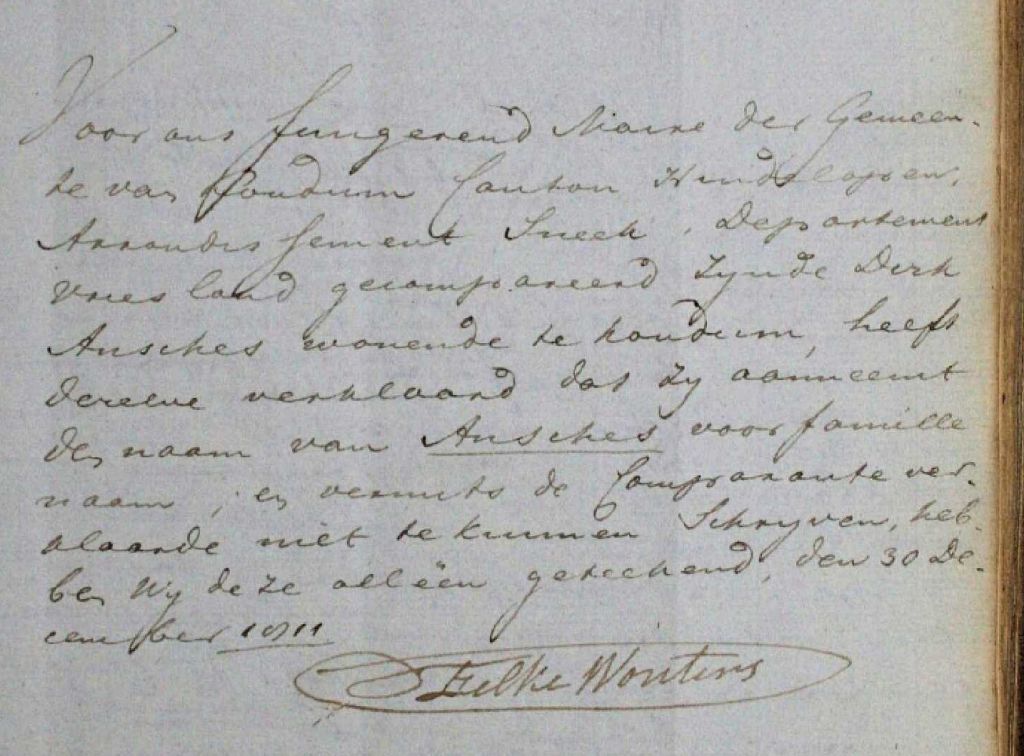 Voor ons fungerend Maire der Gemeen-
te van Koudum Canton Hindelopen,
Arrondissement Sneek, Departement
Vriesland gecompareerd zynde Dirk
Ansches wonende te Koudum, heeft
derselve verklaard dat zy aanneemt
den naam van Ansches voor famille
naam; en vermits de Comparante ver-
klaarde niet te kunnen Schryven, heb-
ben Wy deze alleën geteekend, den 30 De-
cember 1811
Eelke Wouters